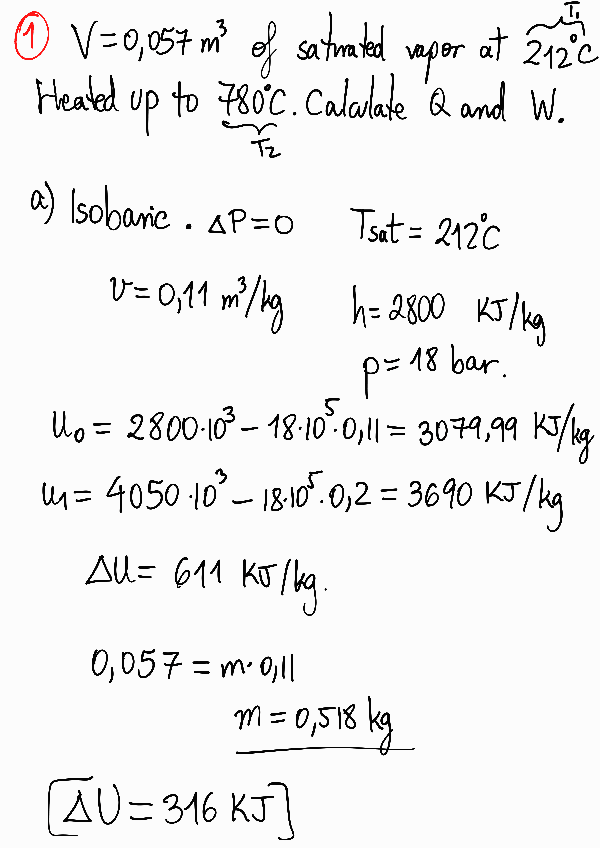 ① V=0,057 m³ of saturated vapor at 212°C
T₁
Heated up to 780°C. Calculate Q and W.
T₂
a) Isobaric. ΔP=0 Tsat = 212°C
v=0,11 m³/kg h=2800 KJ/kg
p=18 bar.
u₀ = 2800·10³ – 18·10⁵·0,11 = 3079,99 KJ/kg
u₁ = 4050·10³ – 18·10⁵·0,2 = 3690 KJ/kg
Δu= 611 KJ/kg.
0,057 = m·0,11
m = 0,518 kg
[ΔU = 316 KJ]